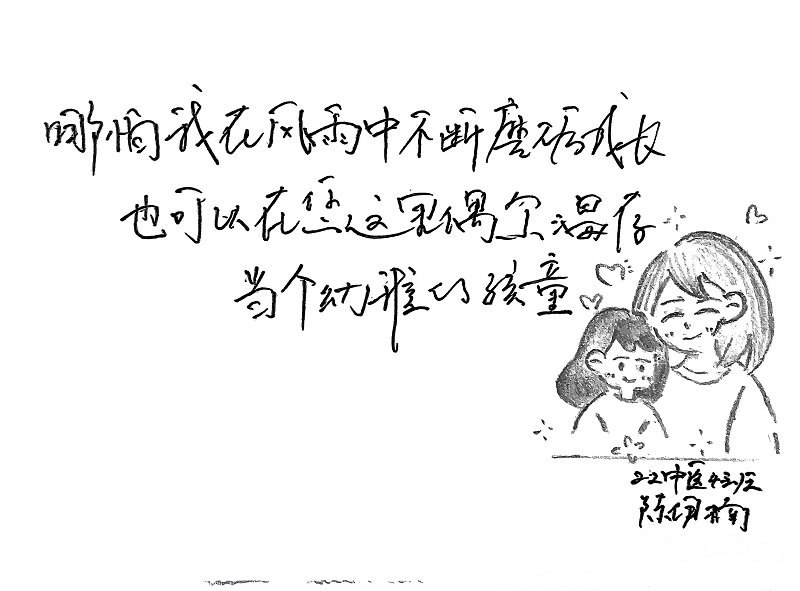 哪怕我在风雨中不断磨砺成长
也可以在您这里偶尔温存
当个幼稚的孩童
22中医
陈